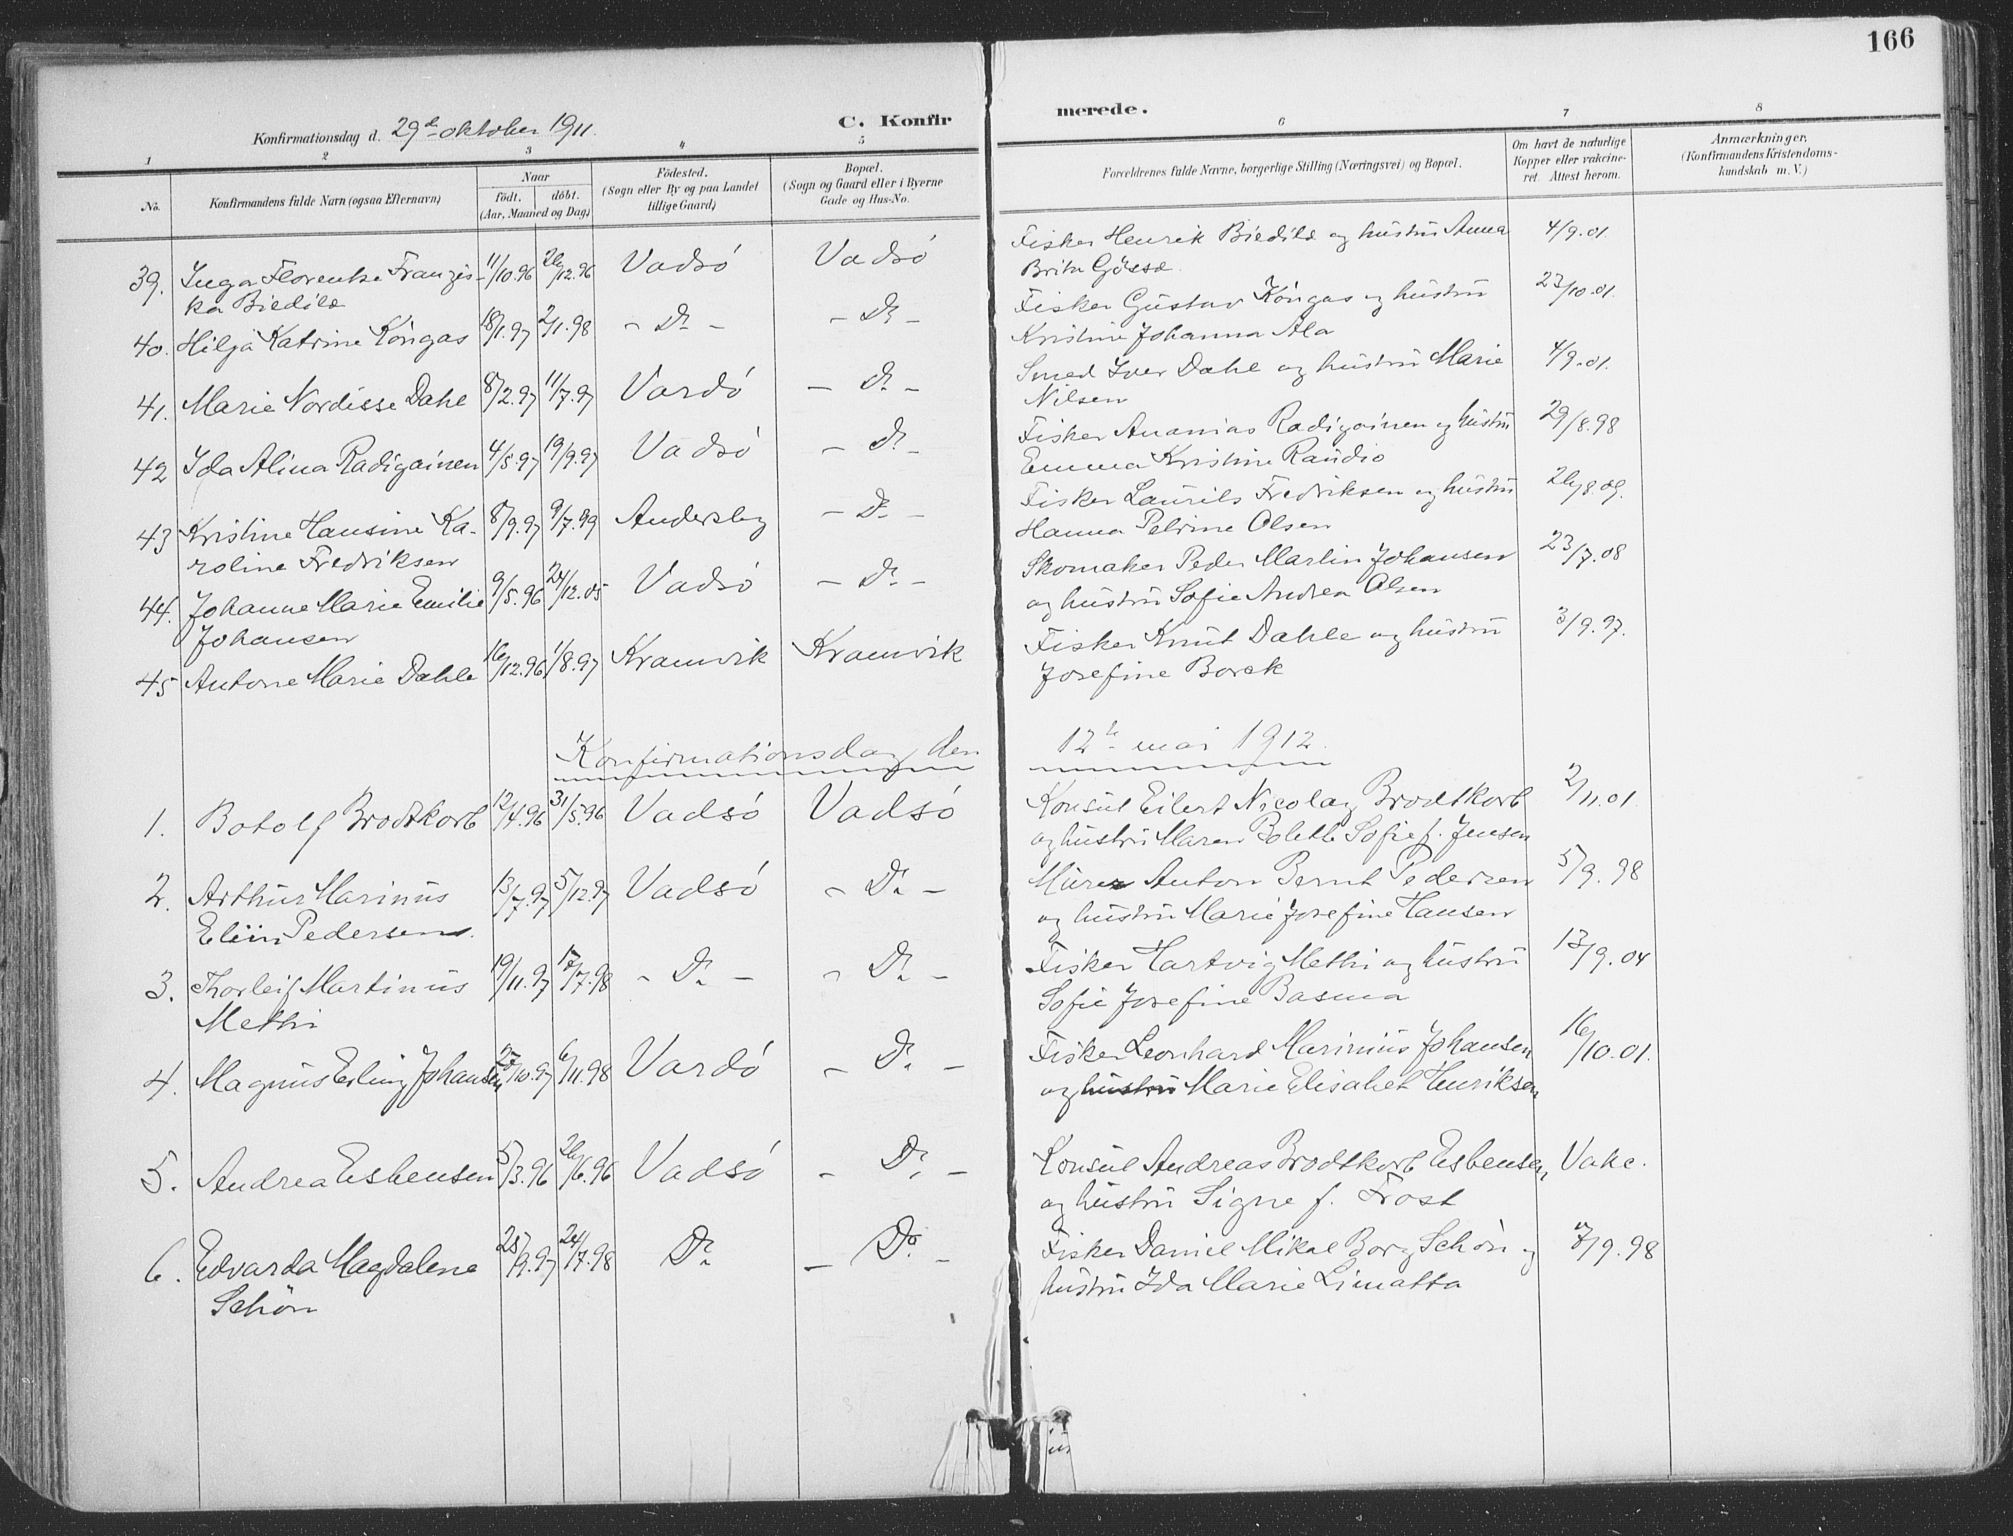 166
Konfirmationsdag d. 29de oktober 1911.
C. Konfirmerede.
1 2 3 4 5 6 7 8
No.
Konfirmandens fulde Navn (ogsaa Efternavn)
Naar
født. døbt.
(Aar, Maaned og Dag)
Fødested.
(Sogn eller By og paa Landet
tillige Gaard)
Bopæl.
(Sogn og Gaard eller i Byerne
Gade og Hus-No.
Forældrenes fulde Navne, borgerlige Stilling (Næringsvei) og Bopæl.
Om havt de naturlige
Kopper eller vakcine-
ret. Attest herom.
Anmærkninger.
(Konfirmandens Kristendoms-
kundskab m. V.)
39. Inga Florentse Franzis- 11/10.96 26/12.96 Vadsö Vadsö Fisker Henrik Biedilæ og hustru Anna 4/9.01.
ka Biedilæ Brita
40. Hilja Katrine Köngas 18/1.97 2/1.98 - Do - - Do - Fisker Gustav Köngas og hustru 23/10.01.
Kristine Johanna Ala
41. Marie Nordisse Dahl 8/2.97 11/7.97 Vardö - Do - Smed Iver Dahl og hustru Marie 4/9.01.
Nilsen
42 Ida Alina Radigainen 4/5.97 19/9.97 Vadsö - Do - Fisker Ananias Radigainen og hustru 29/8.98
Emma Kristine Raudio
43 Kristine Hansine Ka- 8/9.97 9/7.99 Andersby - Do - Fisker Laurits Fredriksen og hustru 26/8.09.
roline Fredriksen Hanna Petrine Olsen
44. Johanne Marie Emilie 9/5.96 24/12.05 Vadsö - Do - Skomaker Peder Martin Johansen 23/7.08
Johansen og hustru Sofie Andrea Olsen
45 Antone Marie Dahle 16/12.96 1/8.97 Kramvik Kramvik Fisker Knut Dahle og hustru 3/9.97.
Josefine Borck
Konfirmationsdag den 12te mai 1912.
1. Botolf Brodtkorb 12/4.96 31/5.96 Vadsö Vadsö Konsul Eilert Nicolay Brodtkorb 2/11.01
og hustru Maren Bolette Sofie f. Jensen
2. Arthur Marinus 13/7.97 5/12.97 Vadsö - Do - Murer Anton Bernt Pedersen 5/9.98
Pedersen. og hustru Marie Josefine Hansen
3. Thorleif Martinus 19/11.97 17/7.98 - Do - - Do - Fisker Hartvig Methi og hustru 13/9.04
Methi Sofie Josefine Basma
4. Magnus Erling Johansen 27/10.97 6/11.98 Vardö - Do - Fisker Leonhard Marinius Johansen 16/10.01.
og hustru Marie Elisabet Henriksen
5. Andrea Esbensen 5/3.96 26/6.96 Vadsö - Do - Konsul Andreas Brodtkorb Esbensen, Vakc.
og hustru Signe f. Frost
6. Edvarda Magdalene 25/9.97 24/7.98 Do - Do - Fisker Daniel Mikal Borg Schön og /9.98
Schön hustru Ida Marie Limatta